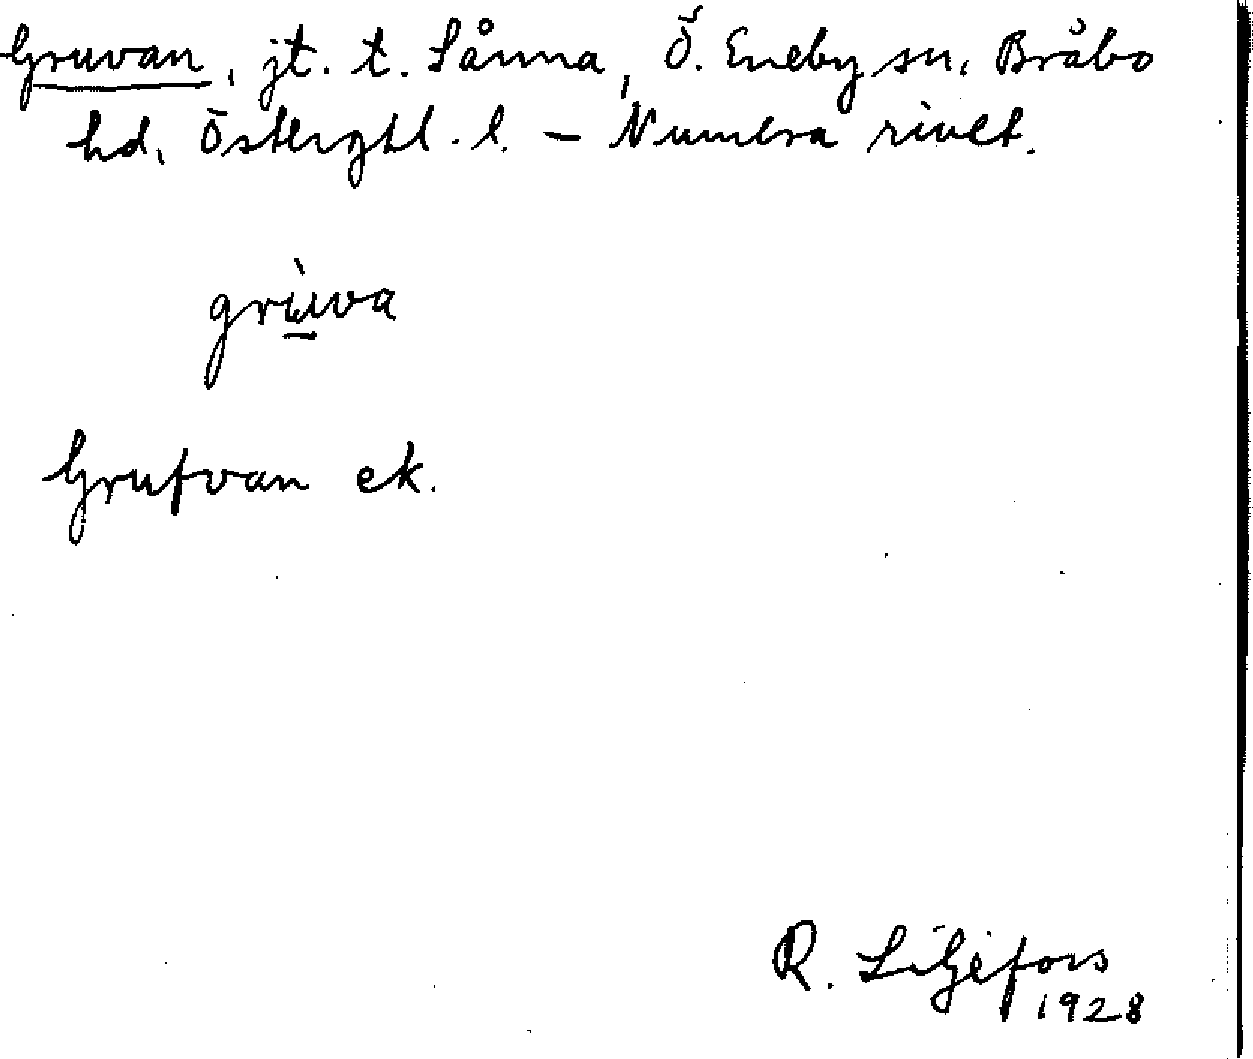 Gruvan, jt. t. Sånna, Ö. Eneby sn, Bråbo
hd, Östergtl. l. – Numera rivet.
grùva
Grufvan ek.
R. Liljefors
1928